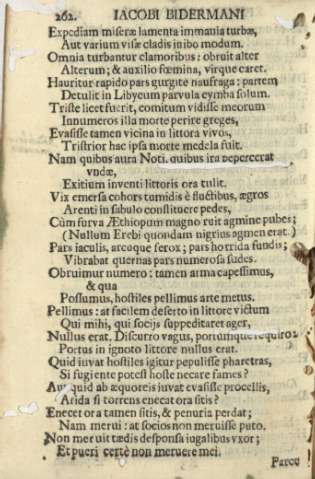 262. IACOBI BIDERMANI
Expediam miseræ lamenta immania turbæ,
Aut varium visæ cladis inibo modum.
Omnia turbantur clamoribus: obruit alter
Alterum; & auxilio fœmina, virque caret.
Hauritur rapido pars gurgite naufraga: partem
Detulit in Libycum parvula cymba solum.
Triste licet fuerit, comitum vidisse meorum
Innumeros illa morte perire greges,
Evasisse tamen vicina in littora vivos,
Tristior hac ipsa morte medela fuit.
Nam quibus aura Noti, quibus ira pepercerat
vndæ,
Exitium inventi littoris ora tulit.
Vix emersa cohors tumidis è fluctibus, ægros
Arenti in sabulo constituere pedes,
Cùm furva Æthiopum magno ruit agmine pubes;
(Nullum Erebi quondam nigrius agmen erat.)
Pars iaculis, arcuque ferox; pars horrida fundis;
Vibrabat quernas pars numerosa sudes.
Obruimur numero: tamen arma capessimus,
& qua
Possumus, hostiles pellimus arte metus.
Pellimus: at facilem deserto in littore victum
Qui mihi, qui socijs suppeditaret ager,
Nullus erat. Discurro vagus, portumque requiro:
Portus in ignoto littore nullus erat.
Quid iuvat hostiles igitur pepulisse pharetras,
Si fugiente potest holle necare fames?
Aut quid ab æquoreis iuvat evasisse procellis,
Arida si torrens enecat ora sitis?
Enecet ora tamen sitis, & penuria perdat;
Nam merui: at socios non meruisse puto.
Non meruit tædis desponsa iugalibus vxor;
Et pueri certè non meruere mei.
Parcu